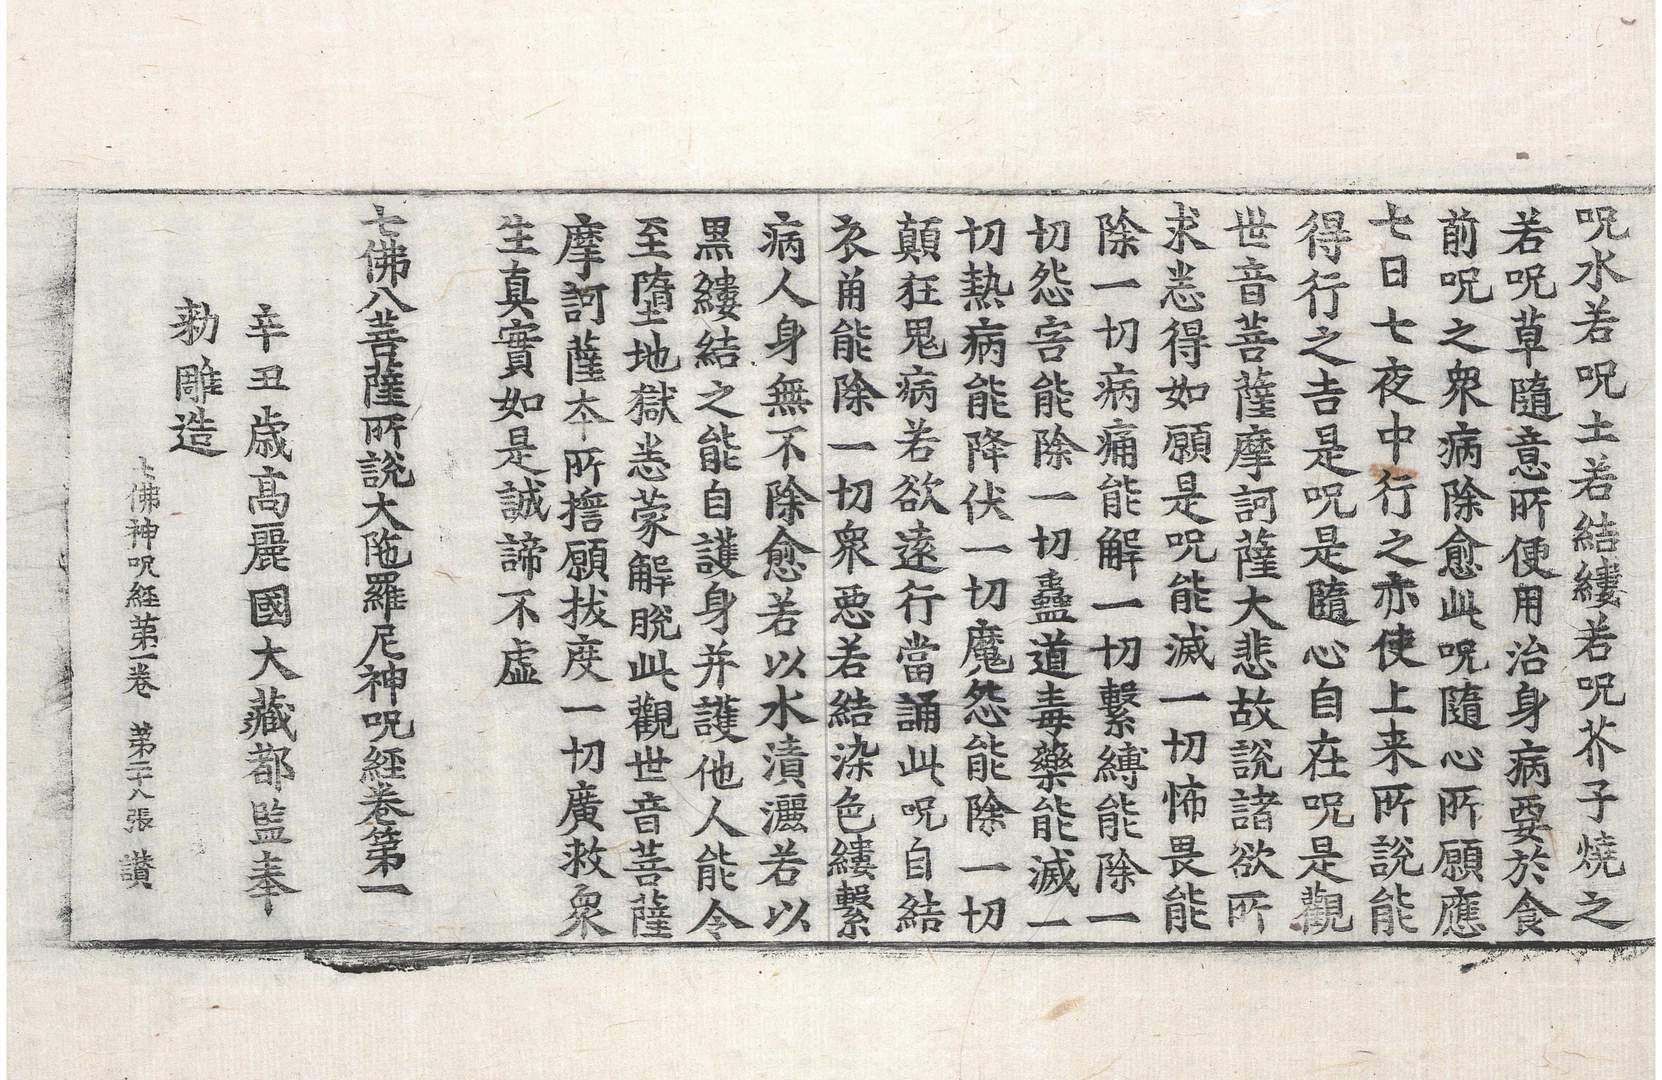 呪水若呪土若結縷若呪芥子燒之
若呪草隨意所便用治身病要於食
前呪之衆病除愈此呪隨心所願應
七日七夜中行之亦使上来所說能
得行之吉是呪是隨心自在呪是觀
世音菩薩摩訶薩大悲故說諸欲所
求悉得如願是呪能滅一切怖畏能
除一切病痛能解一切繫縛能除一
切怨害能除一切蠱道毒藥能滅一
切熱病能降伏一切魔怨能除一切
顛狂鬼病若欲遠行當誦此呪自結
衣角能除一切衆惡若結染色縷繫
病人身無不除愈若以水漬灑若以
黑縷結之能自護身并護他人能令
至墮地獄悉蒙解脫此觀世音菩薩
摩訶薩本所擔願拔度一切廣救衆
生真實如是誠諦不虛
七佛八菩薩所說大陁羅尼神呪經卷第一
辛丑歲高麗國大藏都監奉
勅雕造
七佛神呪經第一卷 第二十八張 讃